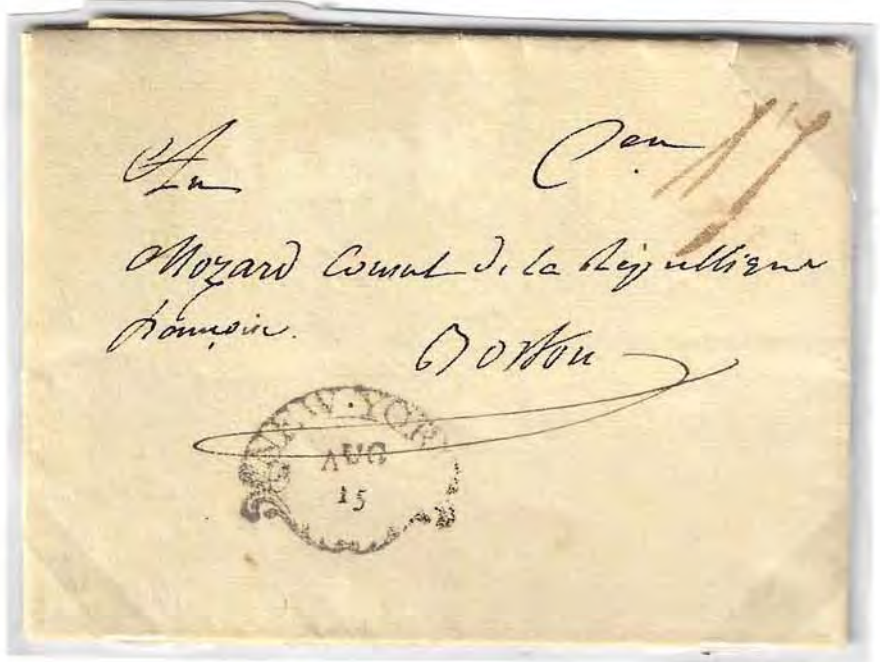 Au Cen 17
Mozard Consul de la République
françoise.
Boston
NEW·YORK
AUG
15